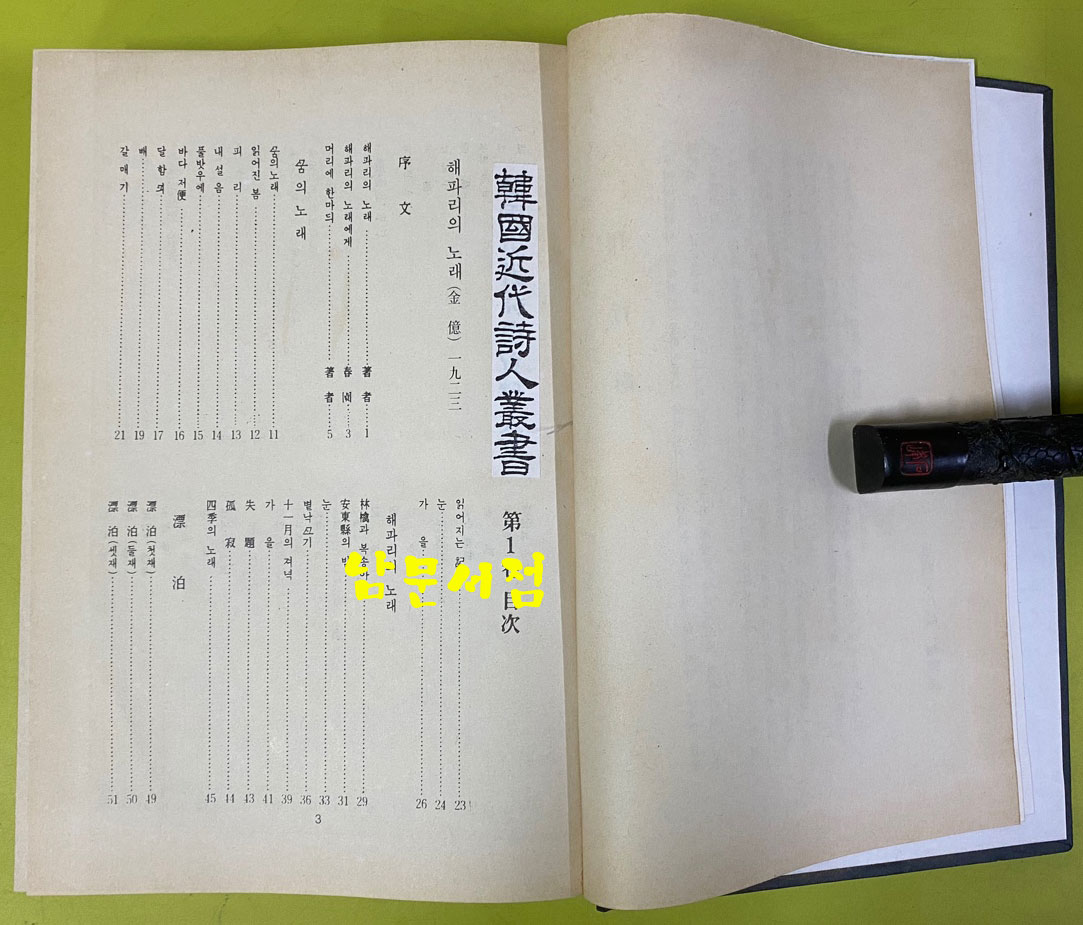 韓國近代詩人叢書
第1 目次
해파리의 노래(金 億) 一九二三
序 文
해파리의 노래 著 者 1
해파리의 노래에게 春 園 3
머리에 한마듸 著 者 5
ᄭᅮᆷ의 노래
ᄭᅮᆷ의 노래 11
읽어진 봄 12
피 리 13
내 설음 14
풀밧우에 15
바다 저便 16
달 함ᄭᅴ 17
배 19
갈매기 21
읽어지는 記 23
눈 24
가 을 26
해파리의 노래
林檎과 복숭아 29
安東縣의 31
눈 33
별낙기 36
十一月의 저녁 39
가 을 41
失 題 43
孤 寂 44
四季의 노래 45
漂 泊
漂 泊(첫재) 49
漂 泊(둘재) 50
漂 泊(셋재) 51
3
남문서점